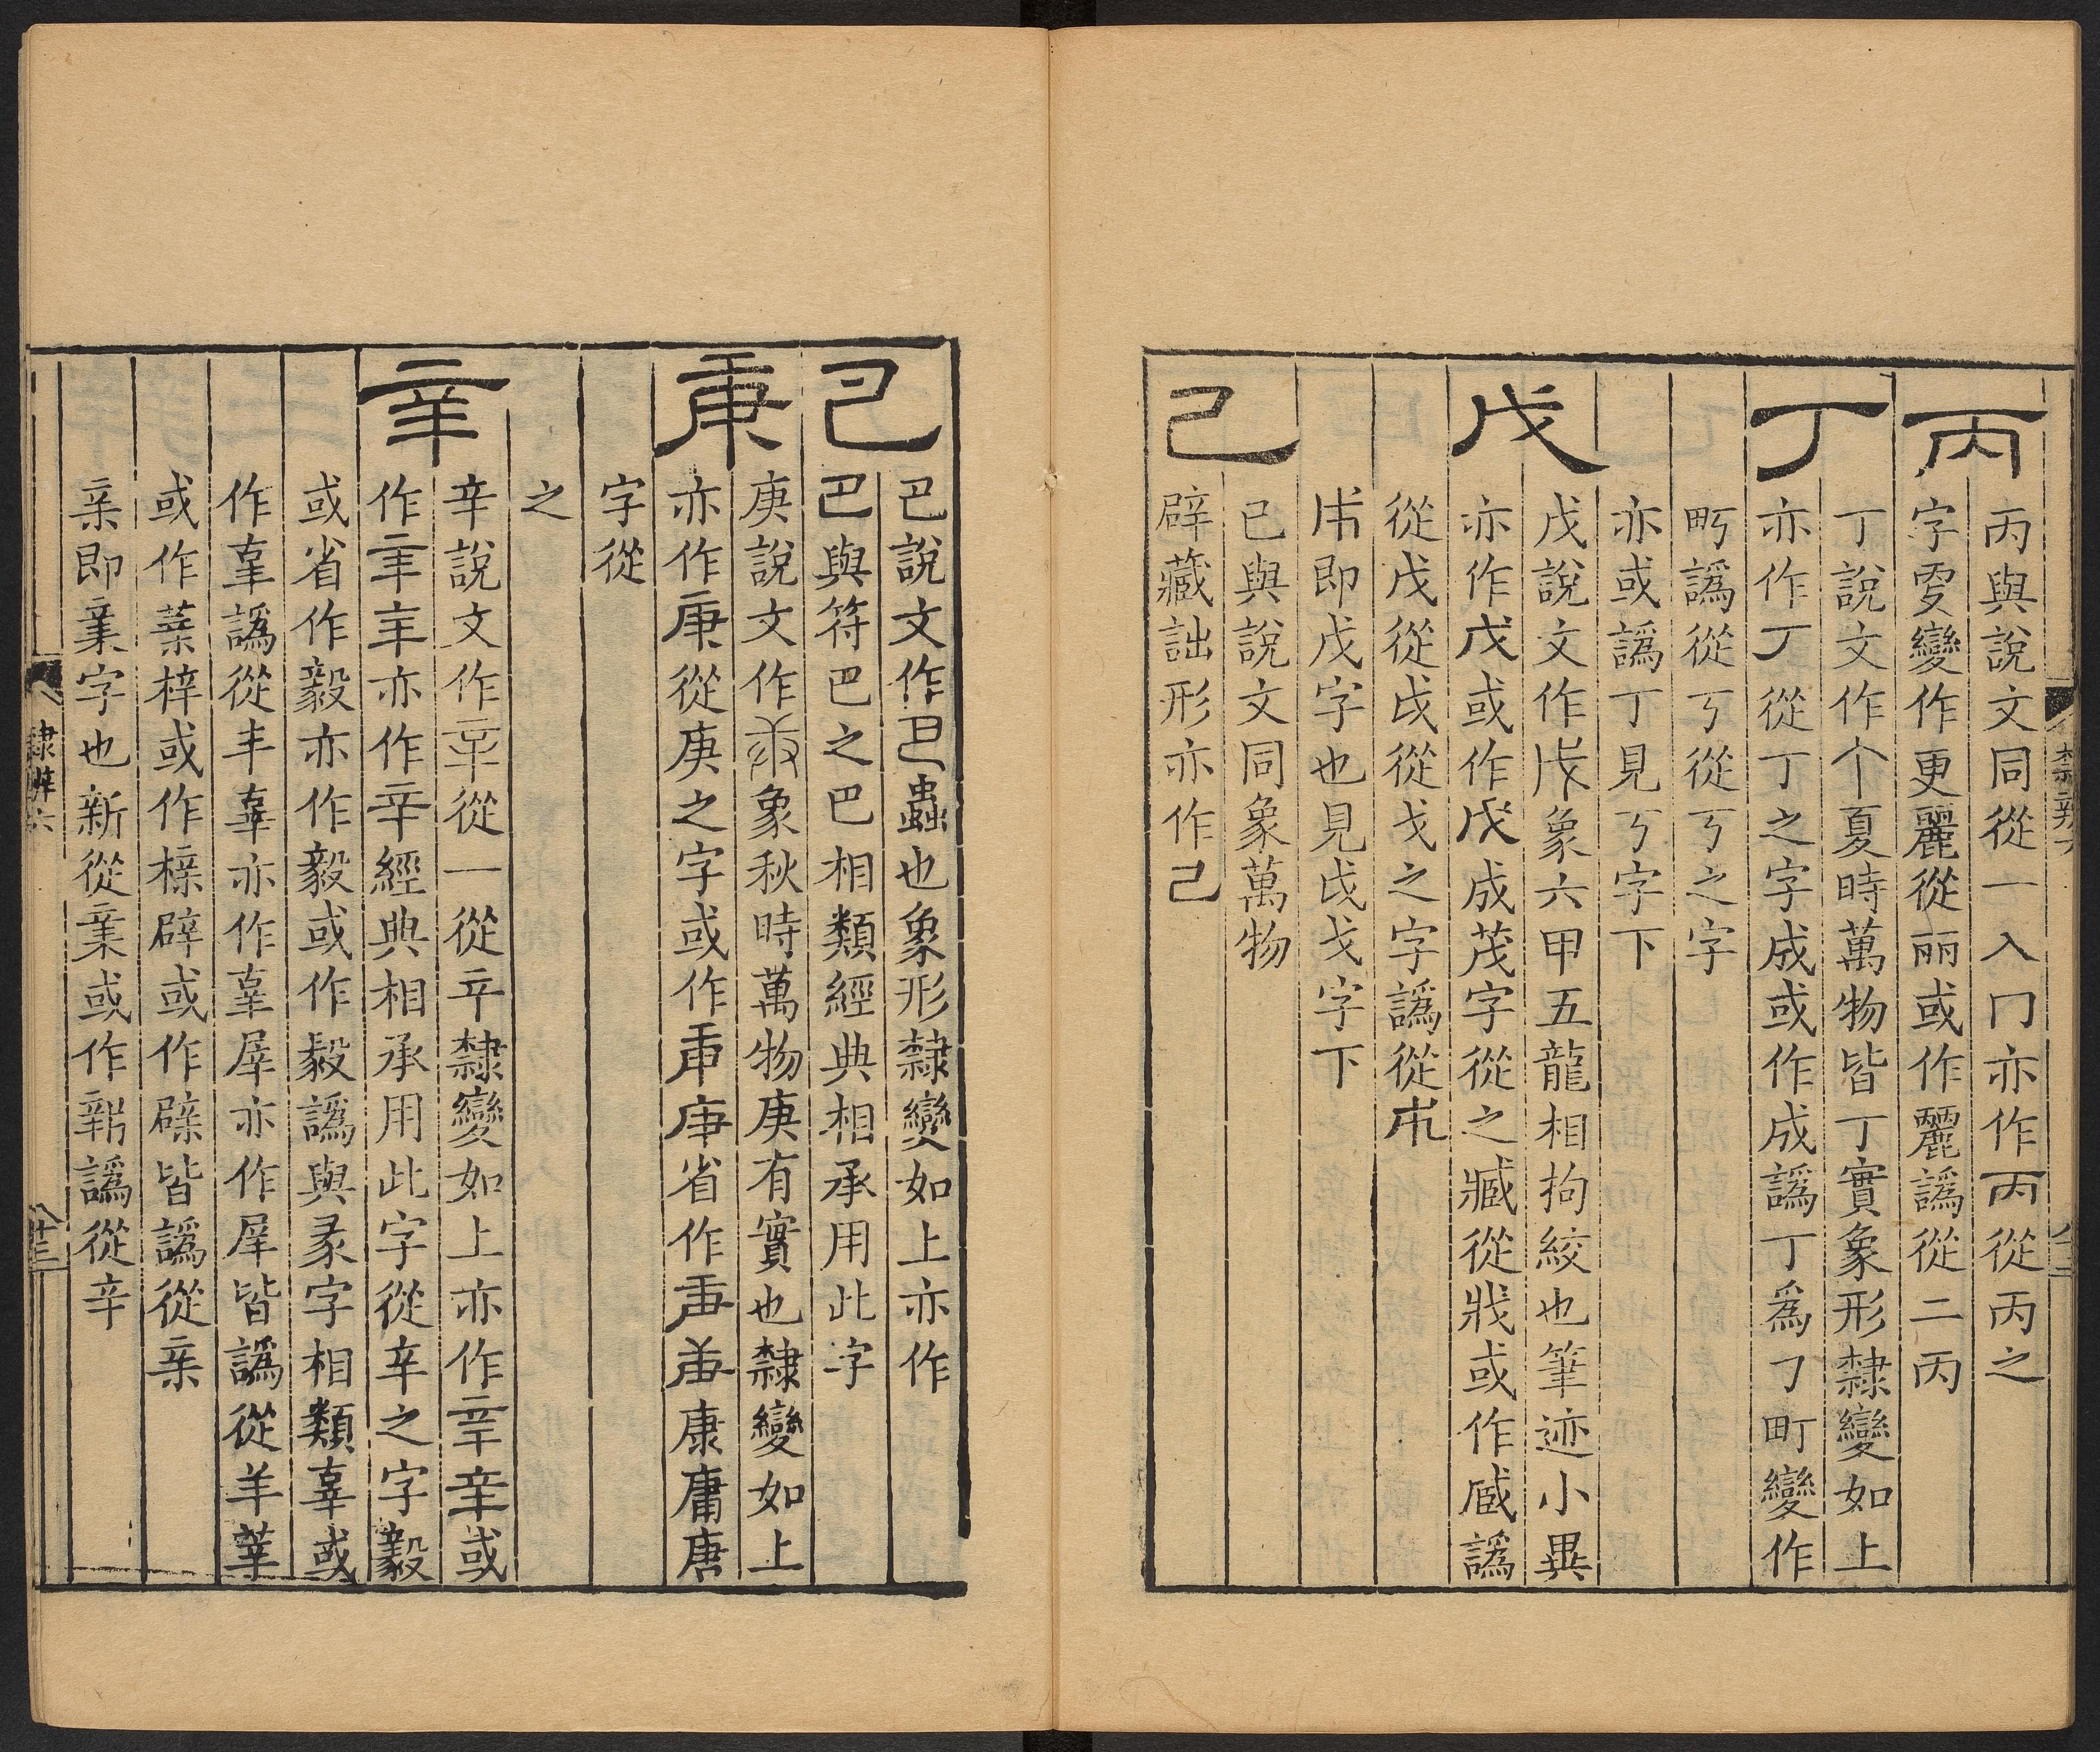 丙
丙與說文同從一入冂亦作丙從丙之
字㪅變作更麗從丽或作麗譌從二丙
丁
丁說文作个夏時萬物皆丁實象形隸變如上
亦作丁從丁之字成或作成譌丁爲㇆町變作
町譌從丂從丂之字
亦或譌丁見丂字下
戊
戊說文作戊象六甲五龍相拘絞也筆迹小異
亦作戊或作戊成茂字從之臧從戕或作臧譌
從戊從戉從戈之字譌從
即戊字也見戉戈字下
己
己與說文同象萬物
辟藏詘形亦作己
巴
巴說文作巴蟲也象形隸變如上亦作
巴與符巴之巴相類經典相承用此字
庚
庚說文作象秋時萬物庚有實也隸變如上
亦作庚從庚之字或作省作康庸唐
字從
之
辛
辛說文作辛從一從䇂隸變如上亦作辛辛或
作亦作辛經典相承用此字從辛之字毅
或省作毅亦作毅或作毅譌與豙字相類辜或
作譌從丰辜亦作辜屖亦作屖皆譌從羊莘
或作梓或作榟辟或作辟皆譌從亲
亲即字也新從或作新譌從辛
隸辨六